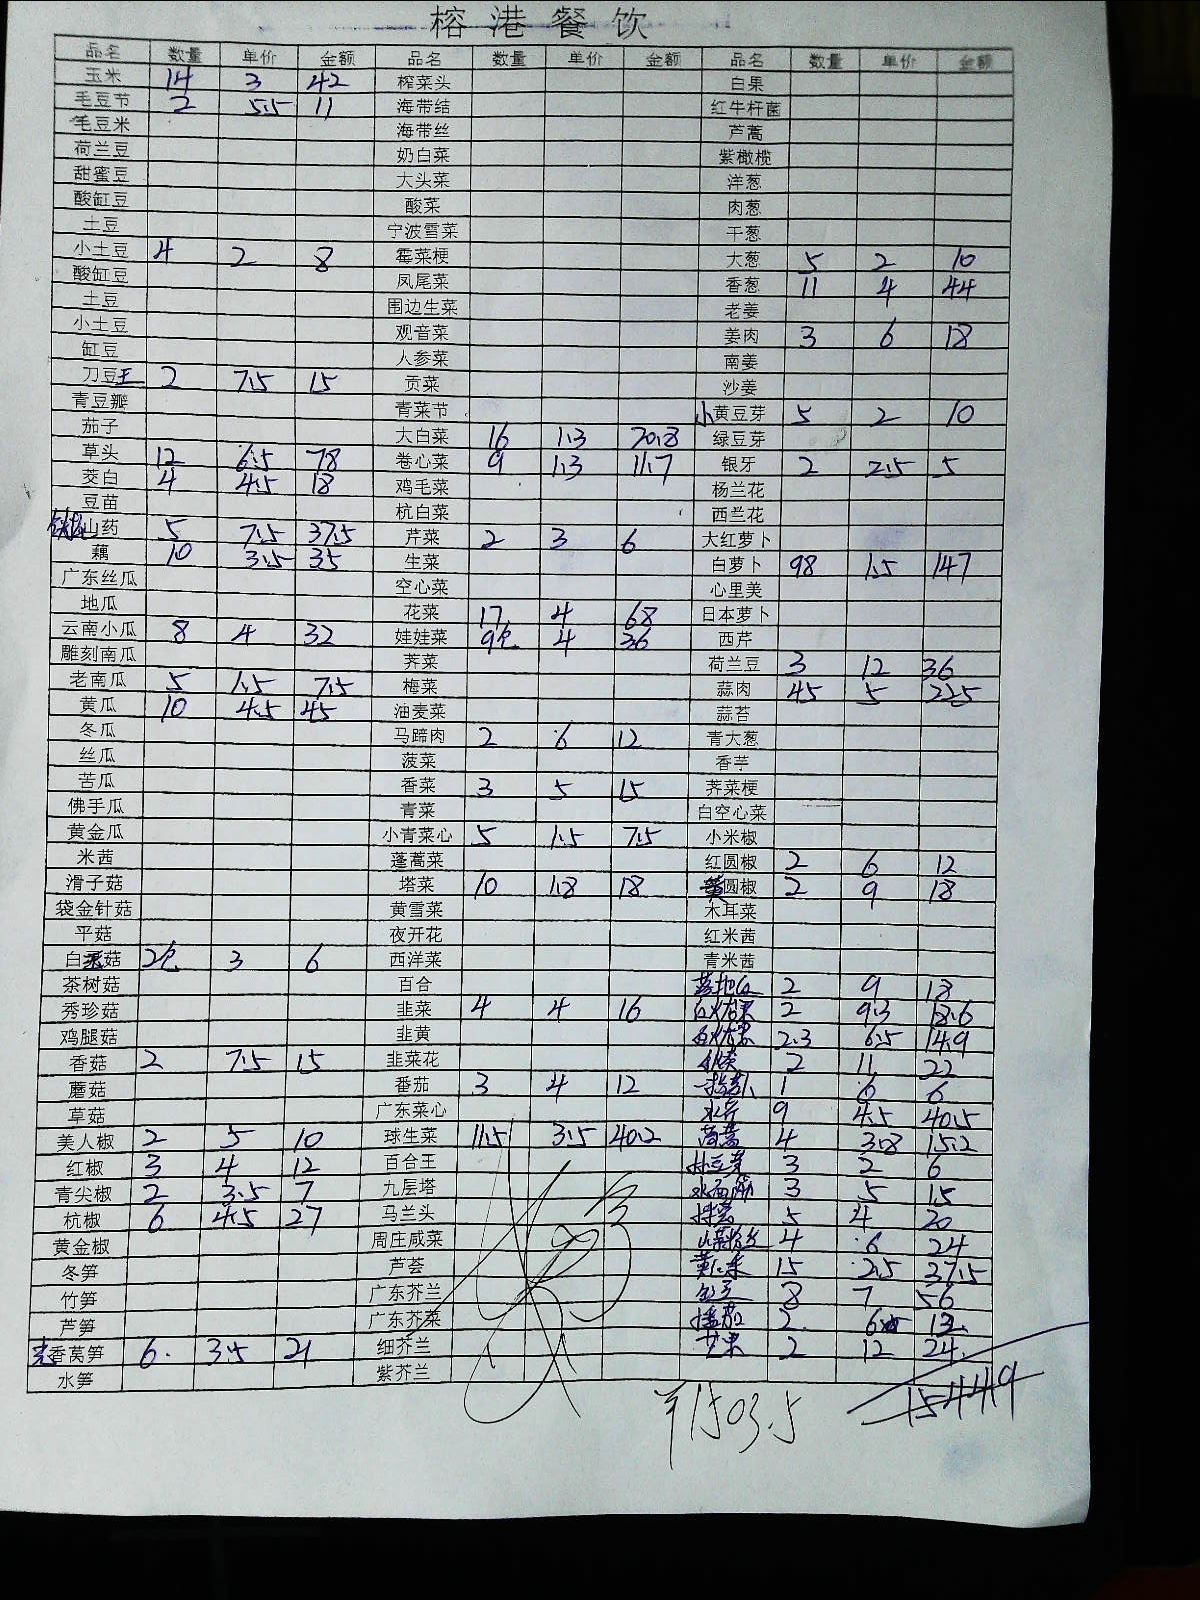 榕港餐饮
品名 数量 单价 金额 品名 数量 单价 金额 品名 数量 单价 金额
玉米 14 3 42 榨菜头 白果
毛豆节 2 5.5 11 海带结 红牛杆菌
毛豆米 海带丝 芦蒿
荷兰豆 奶白菜 紫橄榄
甜蜜豆 大头菜 洋葱
酸缸豆 酸菜 肉葱
土豆 宁波雪菜 干葱
小土豆 4 2 8 霉菜梗 大葱 5 2 10
酸缸豆 凤尾菜 香葱 11 4 44
土豆 围边生菜 老姜
小土豆 观音菜 姜肉 3 6 18
缸豆 人参菜 南姜
刀豆王 2 7.5 15 贡菜 沙姜
青豆瓣 青菜节 小黄豆芽 5 2 10
茄子 大白菜 16 1.3 20.8 绿豆芽
草头 12 6.5 78 卷心菜 9 1.3 11.7 银牙 2 2.5 5
茭白 4 4.5 18 鸡毛菜 杨兰花
豆苗 杭白菜 西兰花
山药 5 7.5 37.5 芹菜 2 3 6 大红萝卜
藕 10 3.5 35 生菜 白萝卜 98 1.5 147
广东丝瓜 空心菜 心里美
地瓜 花菜 17 4 68 日本萝卜
云南小瓜 8 4 32 娃娃菜 9包 4 36 西芹
雕刻南瓜 荠菜 荷兰豆 3 12 36
老南瓜 5 1.5 7.5 梅菜 蒜肉 45 5 225
黄瓜 10 4.5 45 油麦菜 蒜苔
冬瓜 马蹄肉 2 6 12 青大葱
丝瓜 菠菜 香芋
苦瓜 香菜 3 5 15 荠菜梗
佛手瓜 青菜 白空心菜
黄金瓜 小青菜心 5 1.5 7.5 小米椒
米茜 蓬蒿菜 红圆椒 2 6 12
滑子菇 塔菜 10 1.8 18 黄圆椒 2 9 18
袋金针菇 黄雪菜 木耳菜
平菇 夜开花 红米茜
白菇 2包 3 6 西洋菜 青米茜
茶树菇 百合 2 9 18
秀珍菇 韭菜 4 4 16 2 9.3 18.6
鸡腿菇 韭黄 2.3 6.5 14.9
香菇 2 7.5 15 韭菜花 2 11 22
蘑菇 番茄 3 4 12 1 6 6
草菇 广东菜心 水芹 9 4.5 40.5
美人椒 2 5 10 球生菜 11.5 3.5 40.2 茼蒿 4 3.8 15.2
红椒 3 4 12 百合王 3 2 6
青尖椒 2 3.5 7 九层塔 水面筋 3 5 15
杭椒 6 4.5 27 马兰头 5 4 20
黄金椒 周庄咸菜 4 6 24
冬笋 芦荟 15 2.5 37.5
竹笋 广东芥兰 8 7 56
芦笋 广东芥菜 2 13
香莴笋 6 3.5 21 细芥兰 芒果 2 12 24
水笋 紫芥兰
¥1503.5 1544.9